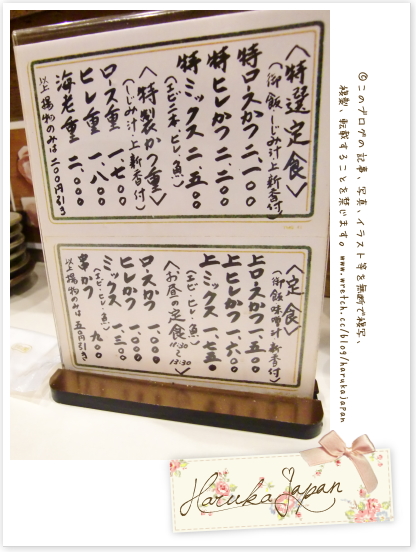 〈特選定食〉
(御飯・しじみ汁・上新香付)
特ロースかつ 二、一〇〇
特ヒレかつ 二、二〇〇
特ミックス 二、五〇〇
(エビ・ヒレ・魚)
〈特製かつ重〉
(しじみ汁・上新香付)
ロース重 一、七〇〇
ヒレ重 一、八〇〇
海老重 二、〇〇〇
以上揚物のみは二〇〇円引き
〈定食〉
(御飯・味噌汁・新香付)
上ロースかつ 一、五〇〇
上ヒレかつ 一、六〇〇
上ミックス 一、七五〇
(エビ・ヒレ・魚)
〈お昼の定食〉 11:30〜13:30
ロースかつ 一、〇〇〇
ヒレかつ 一、一〇〇
ミックス 一、三〇〇
(エビ・ヒレ・魚)
串かつ 九〇〇
以上揚物のみは五〇円引き
©このブログの記事、写真、イラスト等を無断で複写、
複製、転載することを禁じます。www.wretch.cc/blog/harukajapan
Haruka Japan